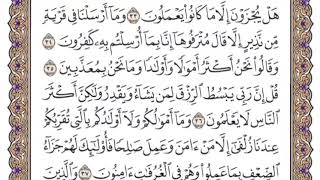 هَلْ يُجْزَوْنَ إِلَّا مَا كَانُوا۟ يَعْمَلُونَ ٣٣ وَمَآ أَرْسَلْنَا فِى قَرْيَةٍ
مِّن نَّذِيرٍ إِلَّا قَالَ مُتْرَفُوهَآ إِنَّا بِمَآ أُرْسِلْتُم بِهِۦ كَٰفِرُونَ ٣٤
وَقَالُوا۟ نَحْنُ أَكْثَرُ أَمْوَٰلًا وَأَوْلَٰدًا وَمَا نَحْنُ بِمُعَذَّبِينَ ٣٥
قُلْ إِنَّ رَبِّى يَبْسُطُ ٱلرِّزْقَ لِمَن يَشَآءُ وَيَقْدِرُ وَلَٰكِنَّ أَكْثَرَ
ٱلنَّاسِ لَا يَعْلَمُونَ ٣٦ وَمَآ أَمْوَٰلُكُمْ وَلَآ أَوْلَٰدُكُم بِٱلَّتِى تُقَرِّبُكُمْ
عِندَنَا زُلْفَىٰٓ إِلَّا مَنْ ءَامَنَ وَعَمِلَ صَٰلِحًا فَأُو۟لَٰٓئِكَ لَهُمْ جَزَآءُ
ٱلضِّعْفِ بِمَا عَمِلُوا۟ وَهُمْ فِى ٱلْغُرُفَٰتِ ءَامِنُونَ ٣٧ وَٱلَّذِينَ